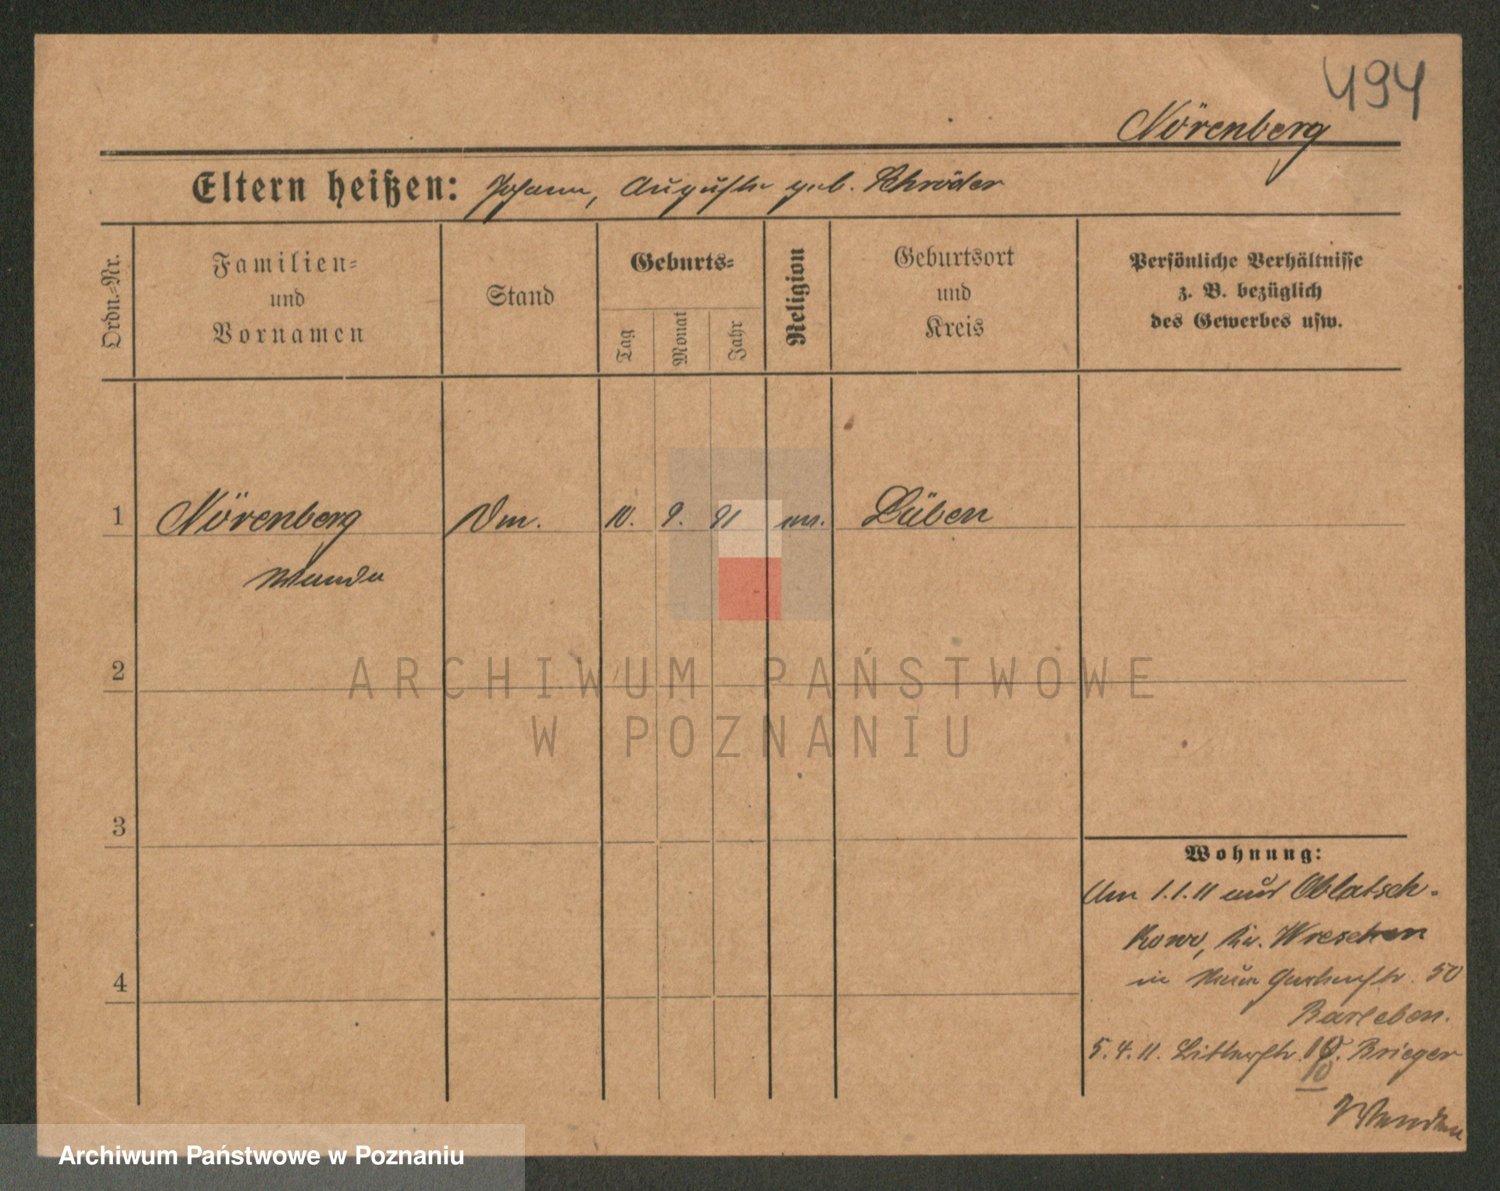 494
Nörenberg
Eltern heißen: Johann, Auguste geb. Schröder
Ordn.-Nr.
Familien-
und
Vornamen
Stand
Geburts-
Tag
Monat
Jahr
Religion
Geburtsort
und
Kreis
Persönliche Verhältnisse
z. B. bezüglich
des Gewerbes usw.
1 Nörenberg 10. 9. 91 Lüben
Wanda
2
ARCHIWUM PAŃSTWOWE
W POZNANIU
3
Wohnung:
Am 1.1.11 aus Oblatsch-
kowo, Kr. Wreschen
in Neue Gartenstr. 50
Barleben.
4
5.4.11. Brieger
Archiwum Państwowe w Poznaniu